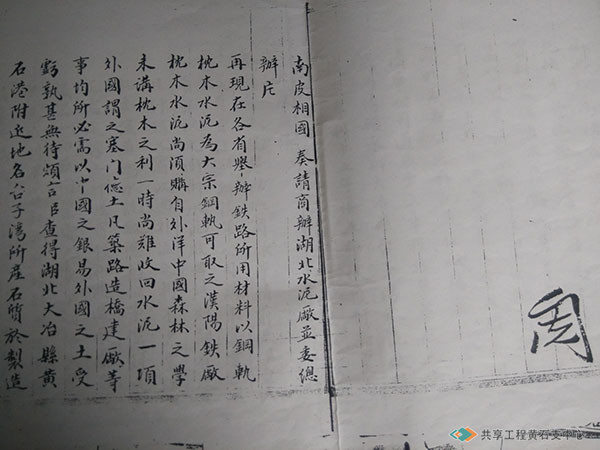 南皮相國 奏請商辦湖北水泥廠並委總
辦片
再現在各省舉辦鉄路所用材料以鋼軌
枕木水泥為大宗鋼軌可取之漢陽鉄廠
枕木水泥尚須購自外洋中國森林之學
未溝枕木之利一時尚難收回水泥一項
外國謂之塞门德土凡築路造橋建廠等
事均所必需以中國之銀易外國之土受
虧孰甚無待頌言臣查得湖北大冶縣黄
石港附近地名台子湾所産石質於製造
周
共享工程黄石支中心